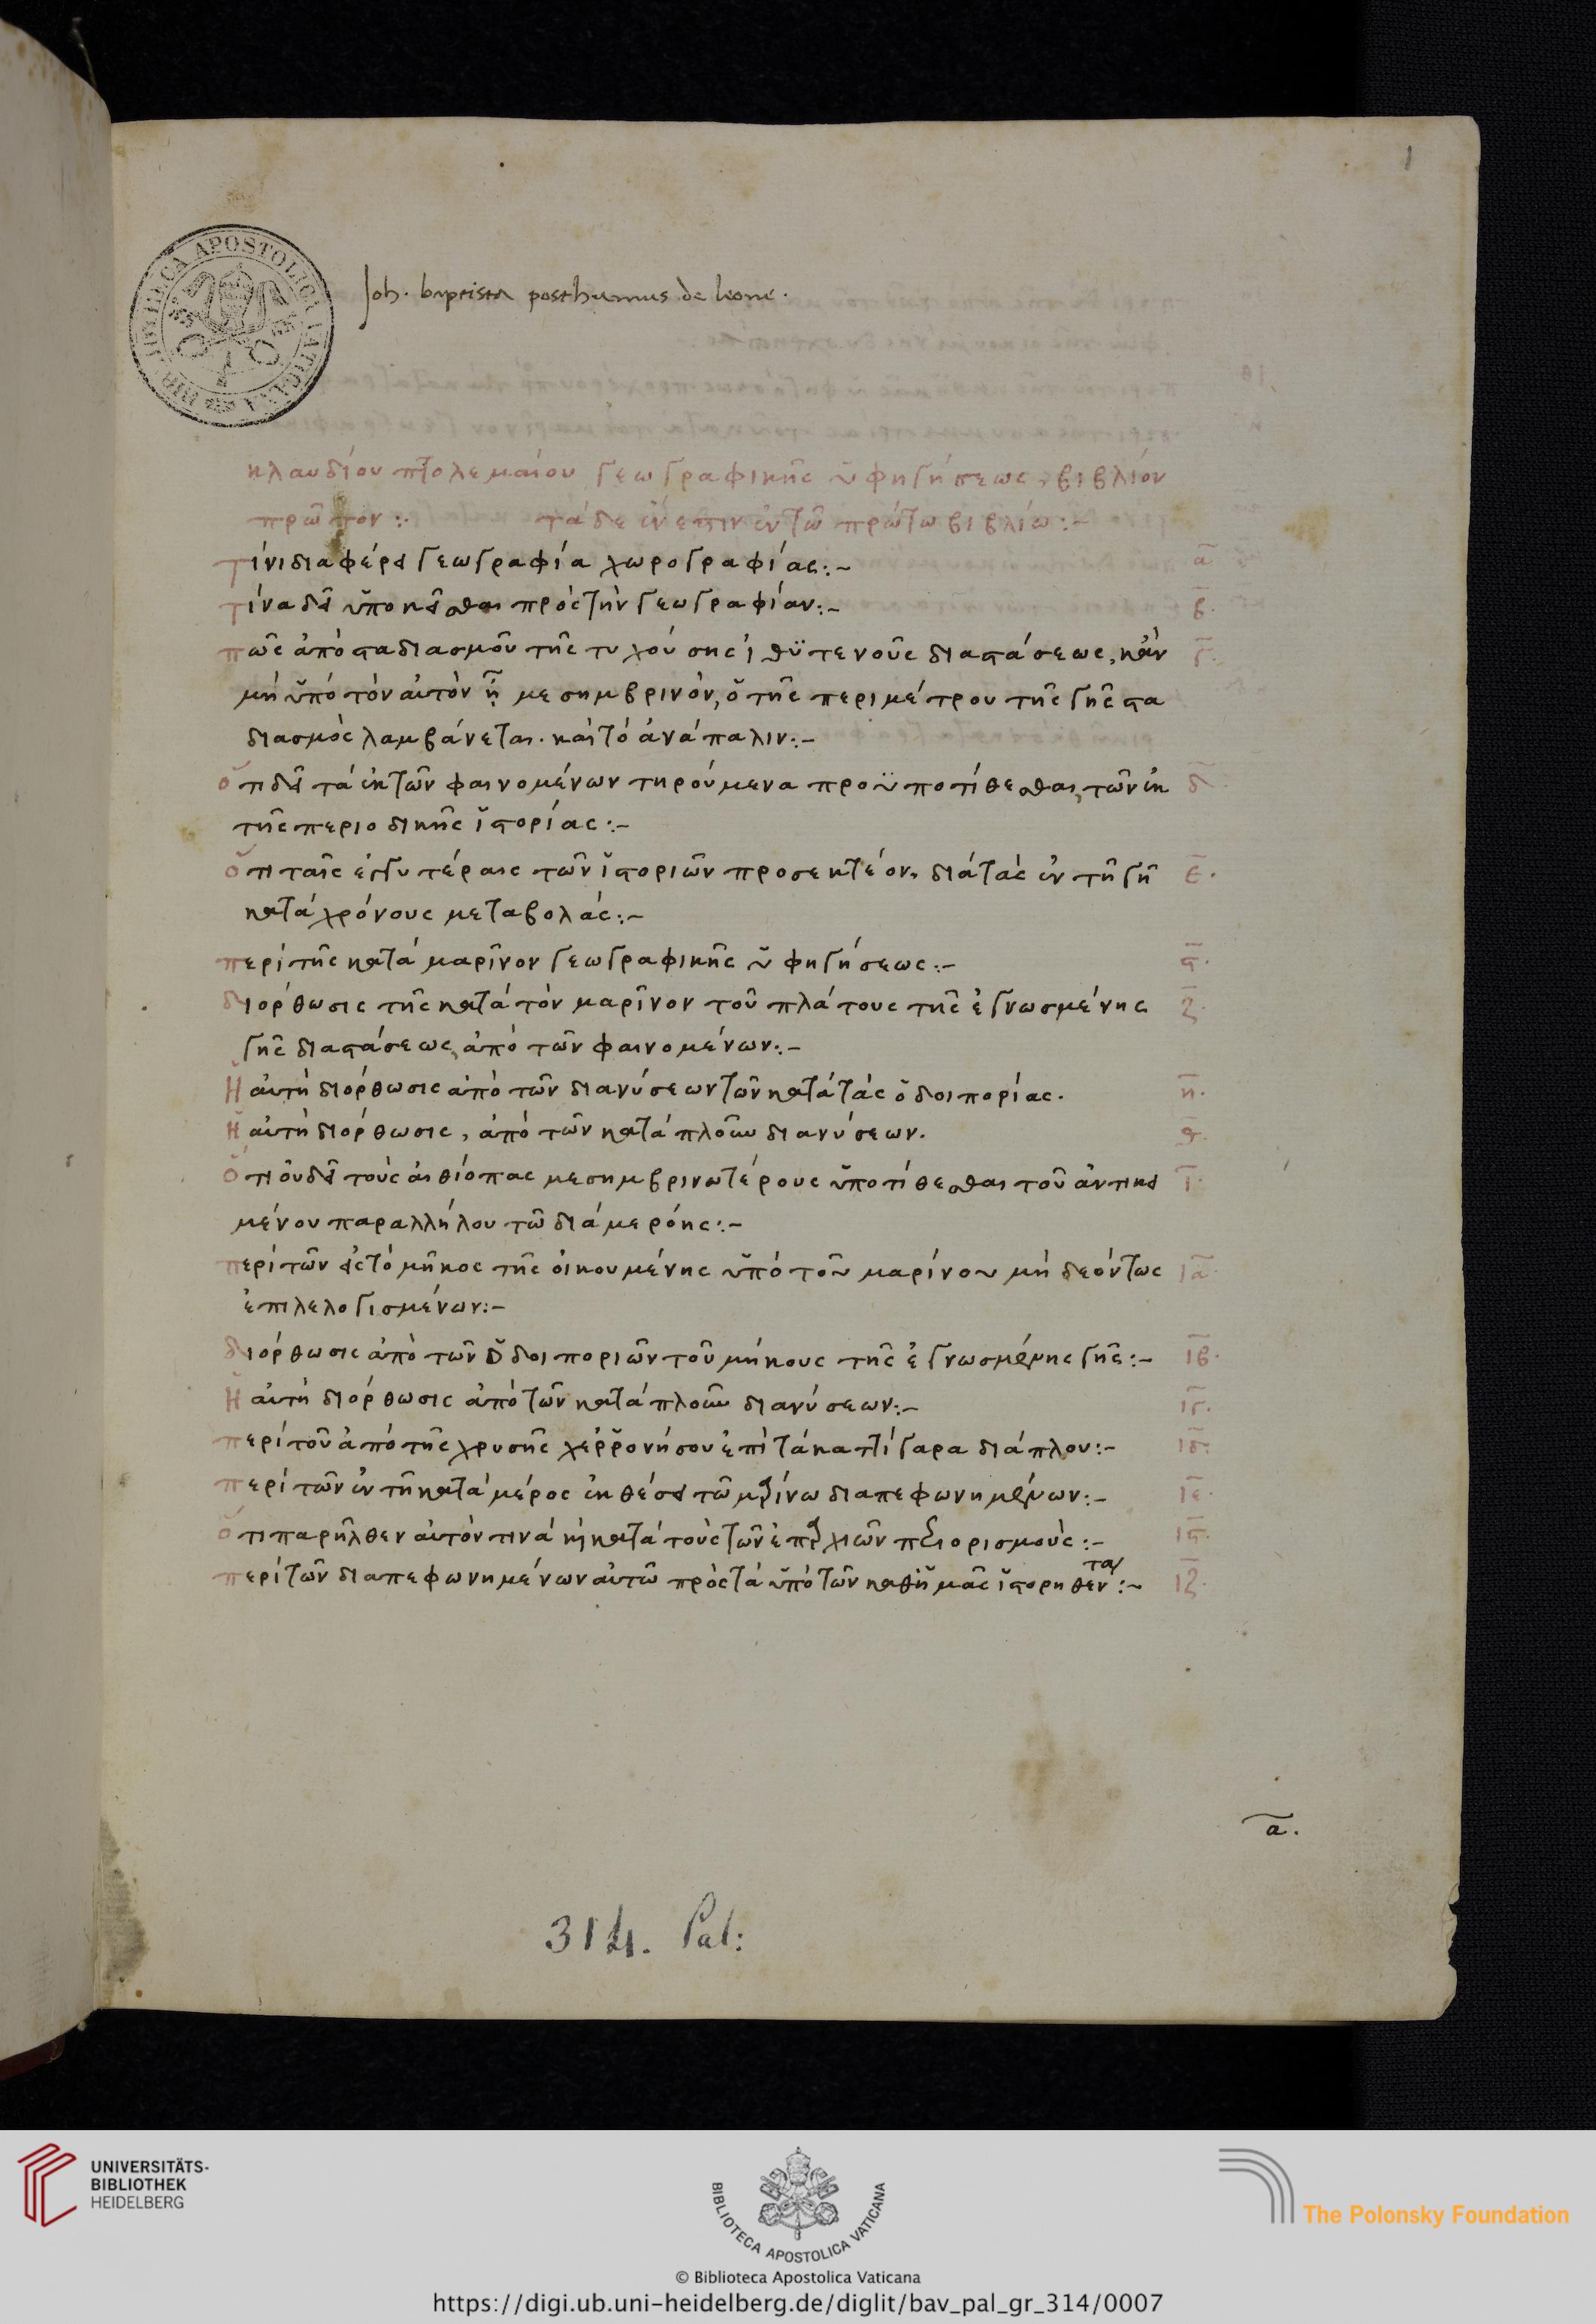 1
BIBLIOTECA APOSTOLICA VATICANA
Joh. baptista posthumus de leone.
κλαυδίου πτολεμαίου γεωγραφικῆς ὑφηγήσεως, βιβλίον
πρῶτον :· τάδε ἔνεστιν ἐν τῶ πρώτω βιβλίω :~
τίνι διαφέρει γεωγραφία χωρογραφίας :~ α
τίνα δεῖ ὑποκεῖσθαι πρὸς τὴν γεωγραφίαν :~ β.
πῶς ἀπὸ σταδιασμοῦ τῆς τυχούσης ἰθϋτενοῦς διαστάσεως, κἂν γ.
μὴ ὑπὸ τὸν αὐτὸν ἦ μεσημβρινὸν, ὁ τῆς περιμέτρου τῆς γῆς στα
διασμὸς λαμβάνεται. καὶ τὸ ἀνάπαλιν :~
ὅτι δεῖ τὰ ἐκ τῶν φαινομένων τηρούμενα προϋποτίθεσθαι, τῶν ἐκ δ
τῆς περιοδικῆς ἱστορίας :~
ὅτι ταῖς ἐγγυτέραις τῶν ἱστοριῶν προσεκτέον, διὰ τὰς ἐν τῆ γῆ ε.
κατὰ χρόνους μεταβολάς :~
περὶ τῆς κατὰ μαρῖνον γεωγραφικῆς ὑφηγήσεως :~ ϛ.
διόρθωσις τῆς κατὰ τὸν μαρῖνον τοῦ πλάτους τῆς ἐγνωσμένης ζ.
γῆς διαστάσεως, ἀπὸ τῶν φαινομένων :~
Ἡ αὐτὴ διόρθωσις ἀπὸ τῶν διανύσεων τῶν κατὰ τὰς ὁδοιπορίας. η.
Ἡ αὐτὴ διόρθωσις, ἀπὸ τῶν κατὰ πλοῦν διανύσεων. θ.
Ὅτι οὐ δεῖ τοὺς αἰθίοπας μεσημβρινωτέρους ὑποτίθεσθαι τοῦ ἀντικει ι.
μένου παραλλήλου τῶ διὰ μερόης :~
περὶ τῶν εἰς τὸ μῆκος τῆς οἰκουμένης ὑπὸ τοῦ μαρίνου μὴ δεόντως ια
ἐπιλελογισμένων :~
διόρθωσις ἀπὸ τῶν ὁδοιποριῶν τοῦ μήκους τῆς ἐγνωσμένης γῆς :~ ιβ.
Ἡ αὐτὴ διόρθωσις ἀπὸ τῶν κατὰ πλοῦν διανύσεων :~ ιγ.
περὶ τοῦ ἀπὸ τῆς χρυσῆς χερρονήσου ἐπὶ τὰ καττίγαρα διάπλου :~ ιδ.
περὶ τῶν ἐν τῆ κατὰ μέρος ἐκθέσει τῶ μαρίνω διαπεφωνημένων :~ ιε.
ὅτι παρῆλθεν αὐτόν τινα κὴ κατὰ τοὺς τῶν ἐπαρχιῶν περιορισμούς :~ ιϛ.
περὶ τῶν διαπεφωνημένων αὐτῶ πρὸς τὰ ὑπὸ τῶν καθ' ἡμᾶς ἱστορηθέντα :~ ιζ.
α.
314. Pal:
UNIVERSITÄTS-
BIBLIOTHEK
HEIDELBERG
BIBLIOTECA APOSTOLICA VATICANA
The Polonsky Foundation
© Biblioteca Apostolica Vaticana
https://digi.ub.uni-heidelberg.de/diglit/bav_pal_gr_314/0007